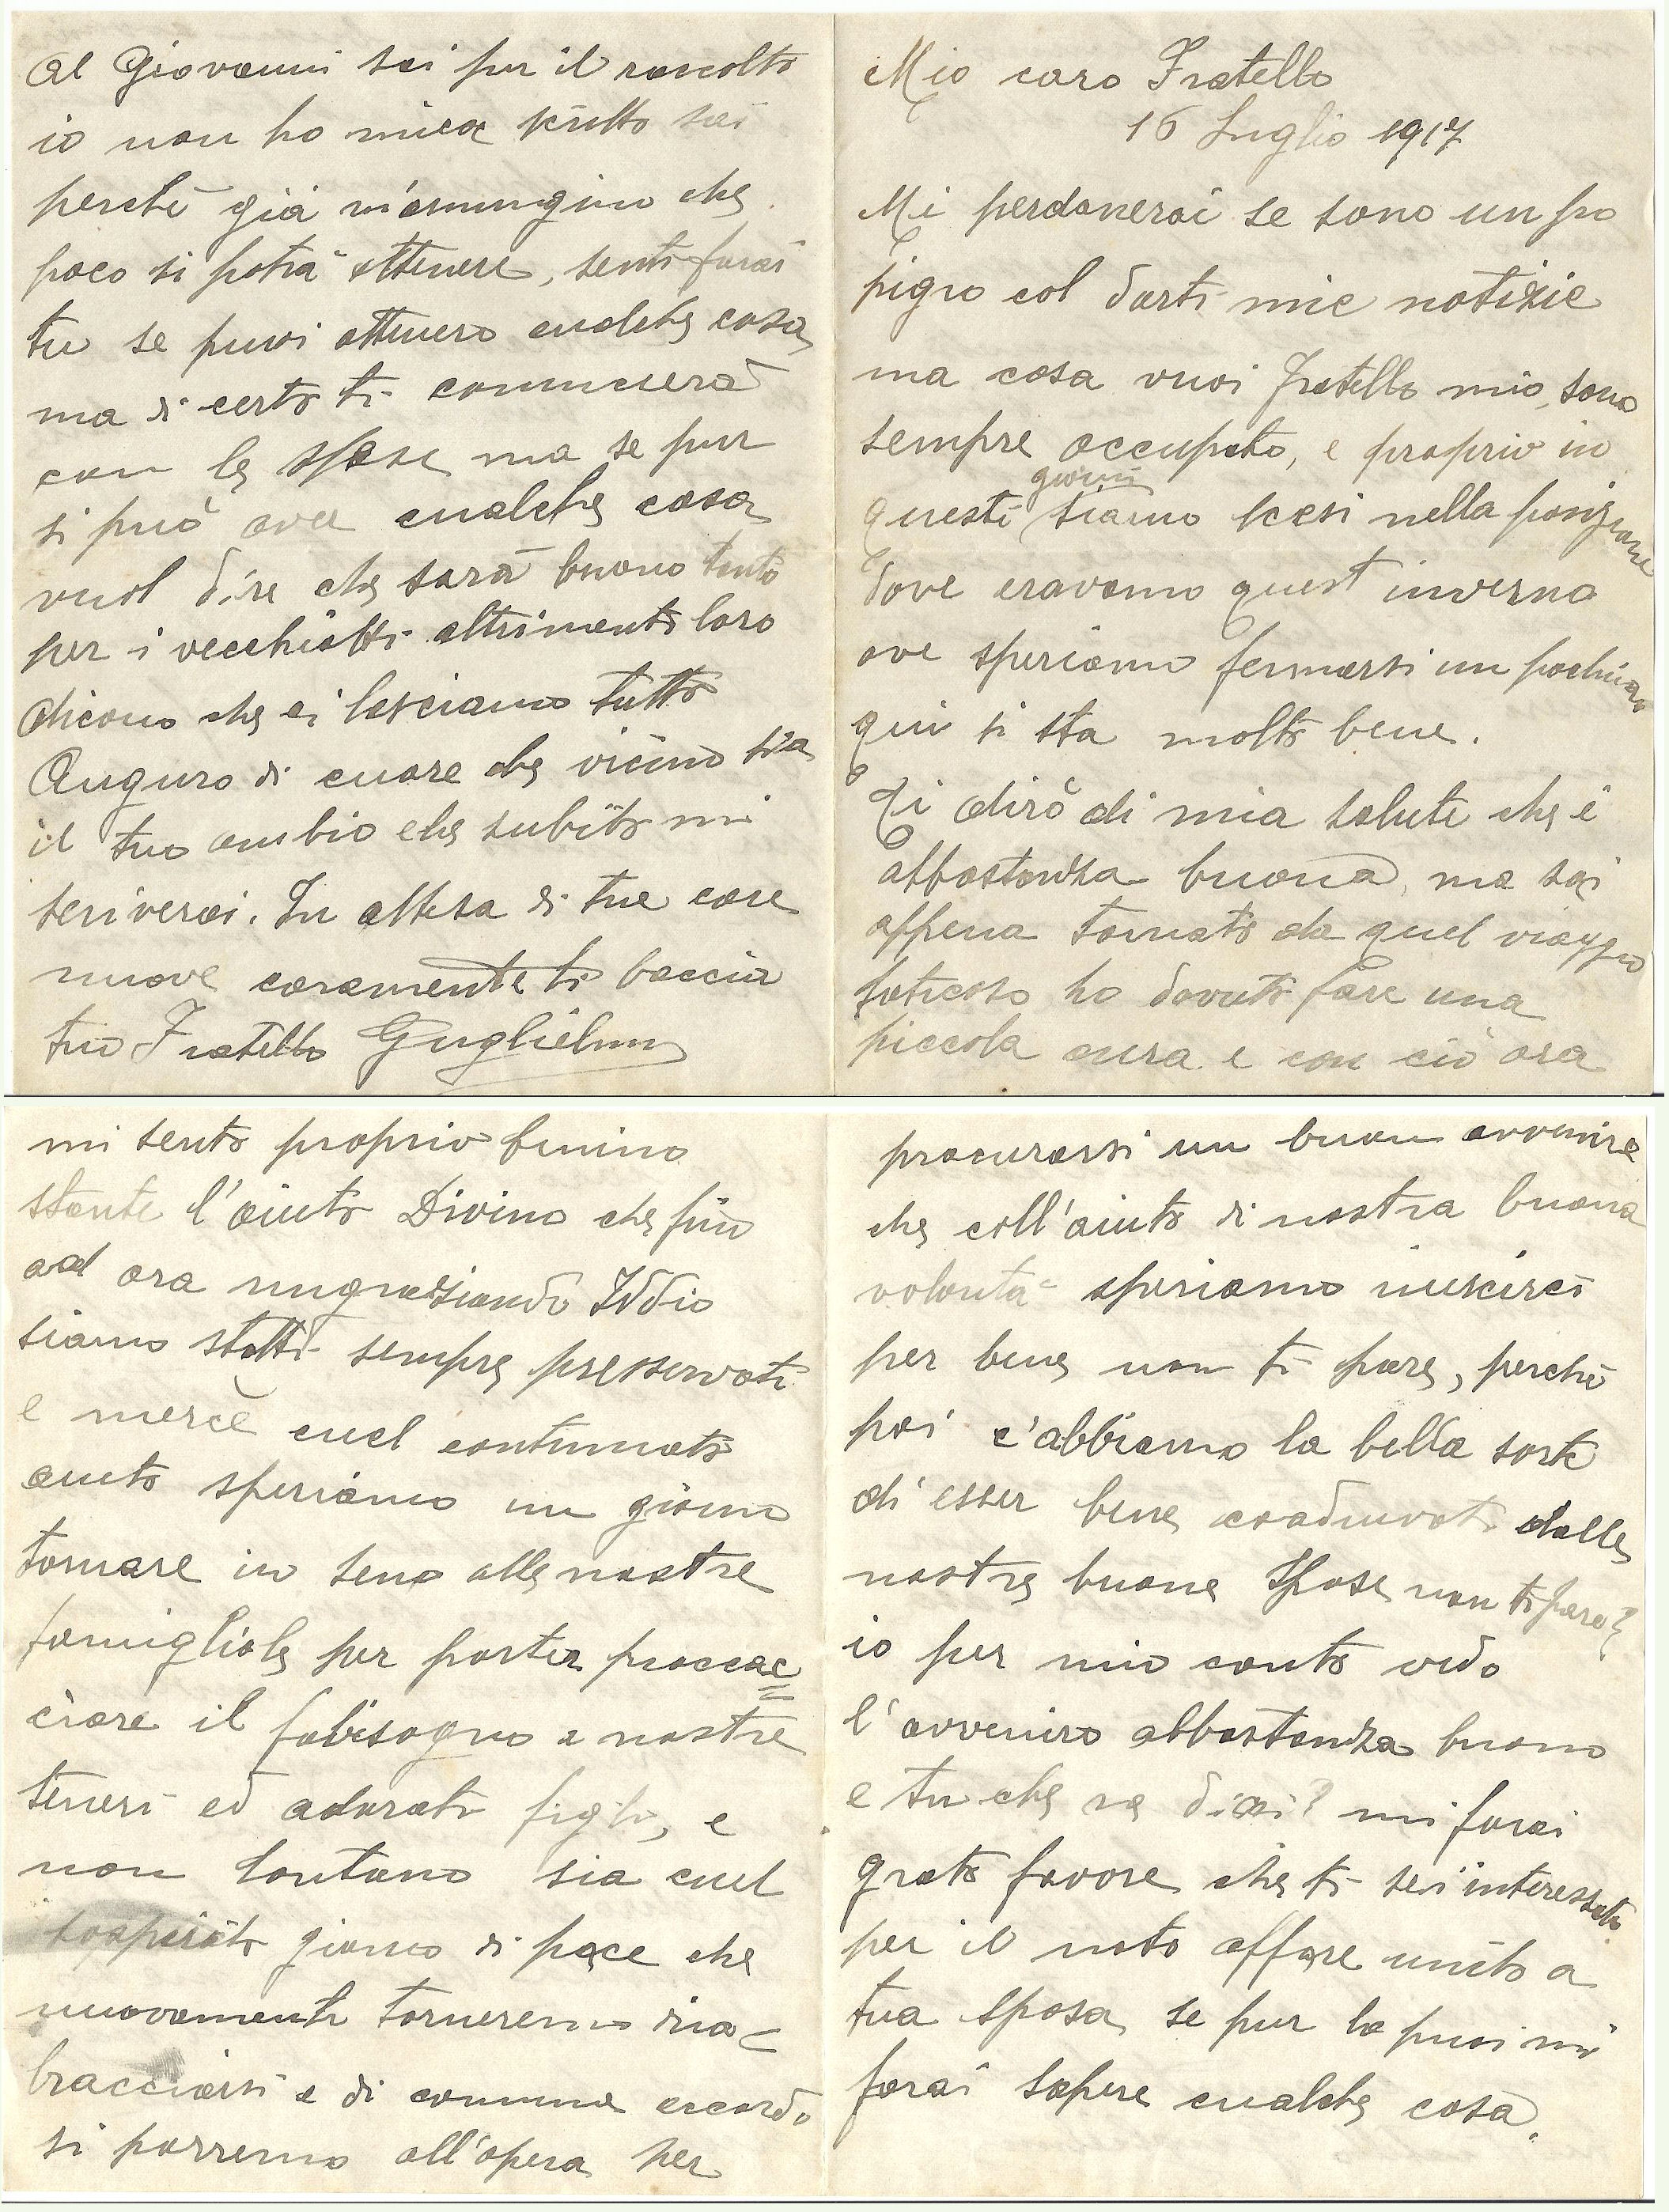 Mio caro Fratello
16 Luglio 1917
Mi perdonerai se sono un po
pigro col darti mie notizie
ma cosa vuoi fratello mio, sono
sempre occupato, e proprio in
questi giorni siamo scesi nella posizione
dove eravamo quest inverno
ove speriamo fermarsi un pochino
qui si sta molto bene.
Ti dirò di mia salute che è
abbastanza buona, ma sai
appena tornato da quel viaggio
faticoso ho dovuto fare una
piccola cura e con ciò ora
mi sento proprio benino
stante l'aiuto Divino che fin
ad ora ringraziando Iddio
siamo statti sempre presservati
e mercè cuel continuato
aiuto speriamo un giorno
tornare in seno alle nostre
famigliole per poster proccac=
ciare il fabisogno a nostre
teneri ed adorati figli, e
non lontano sia cuel
sospirato giorno di pace che
nuovamente torneremo riab
bracciarsi e di comune accordo
si porremo all'opera per
procurarsi un buon avvenire
che coll'aiuto di nostra buona
volontà speriamo riuscirci
per bene non ti pare, perchè
poi c'abbiamo la bella sorte
di esser bene coadiuvati dalle
nostre buone Spose non ti pare?
io per mio conto vedo
l'avveniro abbastanza buono
e tu che ne dici? mi farai
grato favore che ti sei interessato
per il noto affare unito a
tua sposa, se pur la puoi mi
farai sapere cualche cosa.
Al Giovanni sai per il raccolto
io non ho mica scritto sai
perchè già m'immagino che
poco si potrà ottenere, senti farai
tu se puoi ottenero cualche cosa,
ma di certo ti comincierà
con le spese ma se pur
si può aver cualche cosa
vuol dire che sarà buono tanto
per i vecchiotti altrimenti loro
dicono che ci lasciamo tutto
Auguro di cuore che vicino sia
il tuo cambio che subito mi
scriverai. In attesa di tue care
nuove caramente ti baccia
tuo Fratello Guglielmo